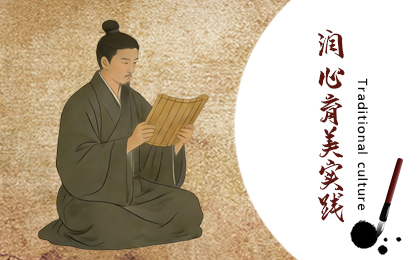 润心育美实践
Traditional culture